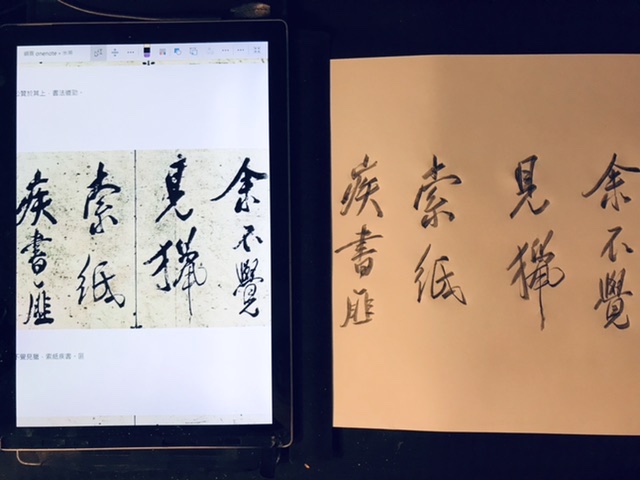 於其上,書法遒勁。
余不覺
見獵
索紙
疾書匪
不覺見獵,索紙疾書。匪
余不覺
見獵
索紙
疾書匪